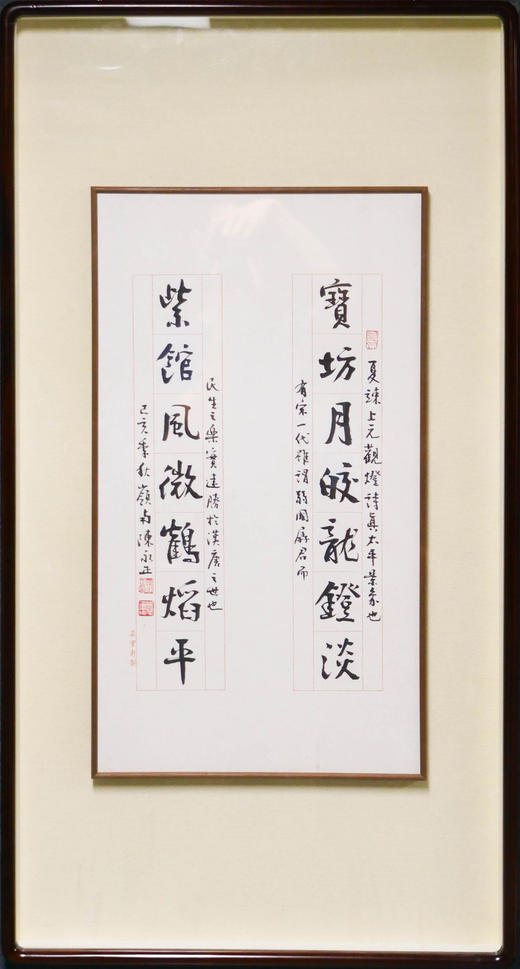 夏竦上元觀燈詩眞太平景象也
寶坊月皎龍鐙淡
有宋一代雖謂弱國孱君而
民生之樂實遠勝於漢唐之世也
紫館風微鶴熖平
己亥季秋嶺南陳永正